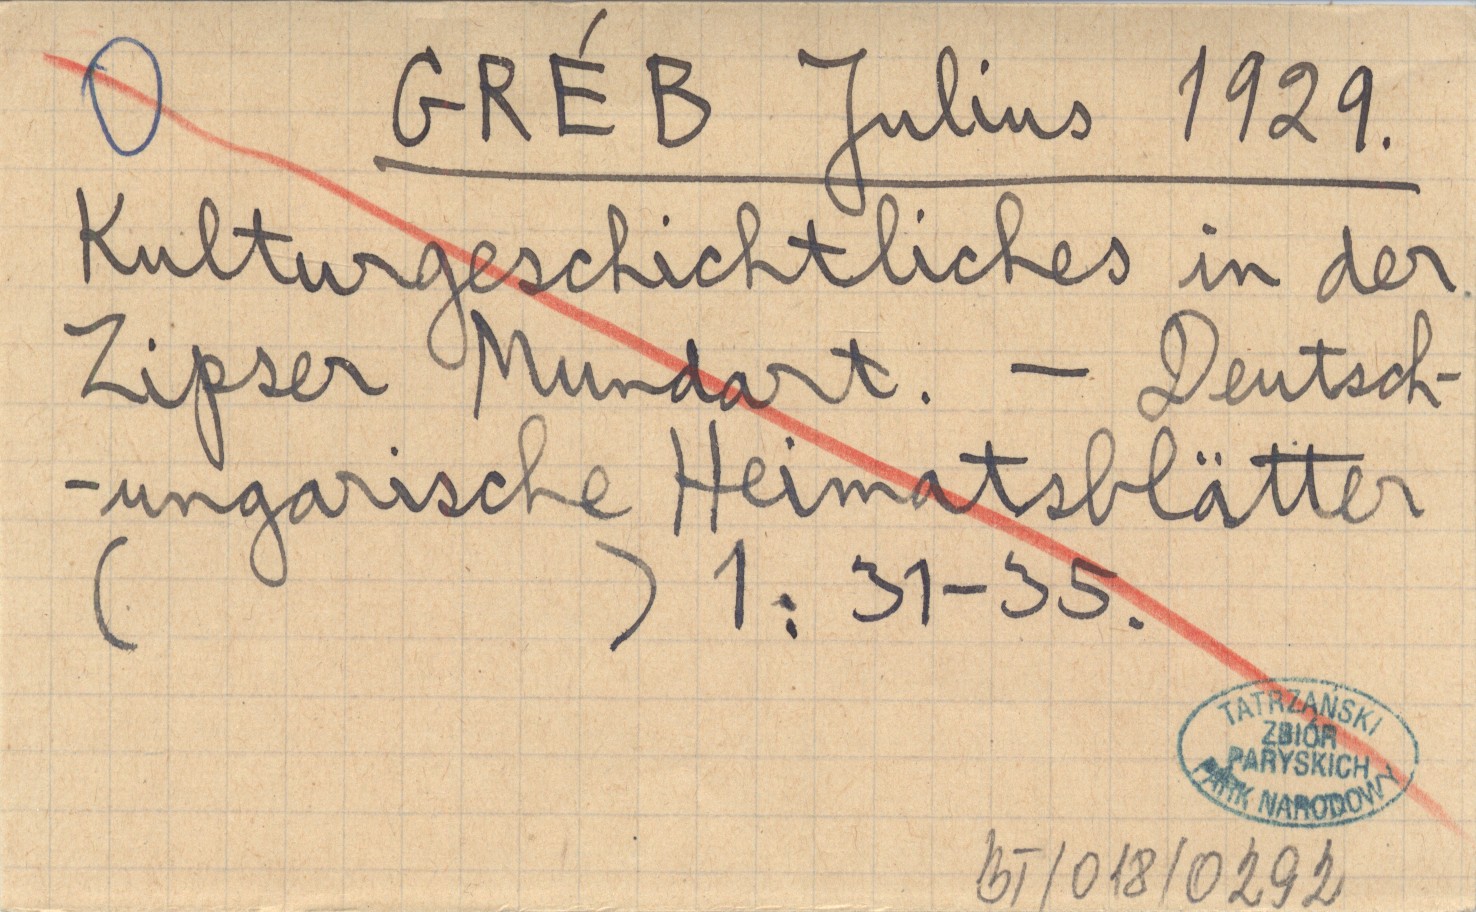 0 GRÉB Julius 1929.
Kulturgeschichtliches in der
Zipser Mundart. — Deutsch-
-ungarische Heimatsblätter
( ) 1: 31-35.
TATRZAŃSKI
ZBIÓR
PARYSKICH
PARK NARODOWY
BT/018/0292